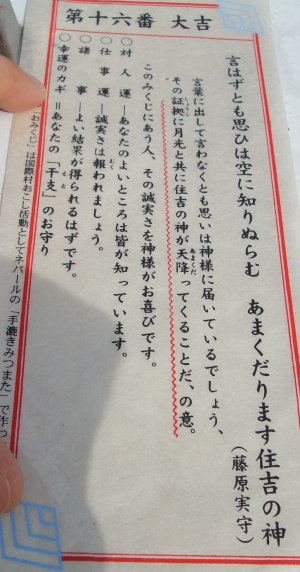 第十六番 大吉
言はずとも思ひは空に知りぬらむ あまくだります住吉の神
(藤原実守)
言葉に出して言わなくとも思いは神様に届いているでしょう、
その証拠に月光と共に住吉の神が天降ってくることだ、の意。
あまくだ
このみくじにあう人、その誠実さを神様がお喜びです。
○対人運―あなたのよいところは皆が知っています。
○仕事運―誠実さは報われましょう。
○諸事―よい結果が得られるはずです。
○幸運のカギ=あなたの「干支」のお守り
えと
「おみくじ」は国際村おこし活動としてネパールの「手漉きみつまた」で作っ